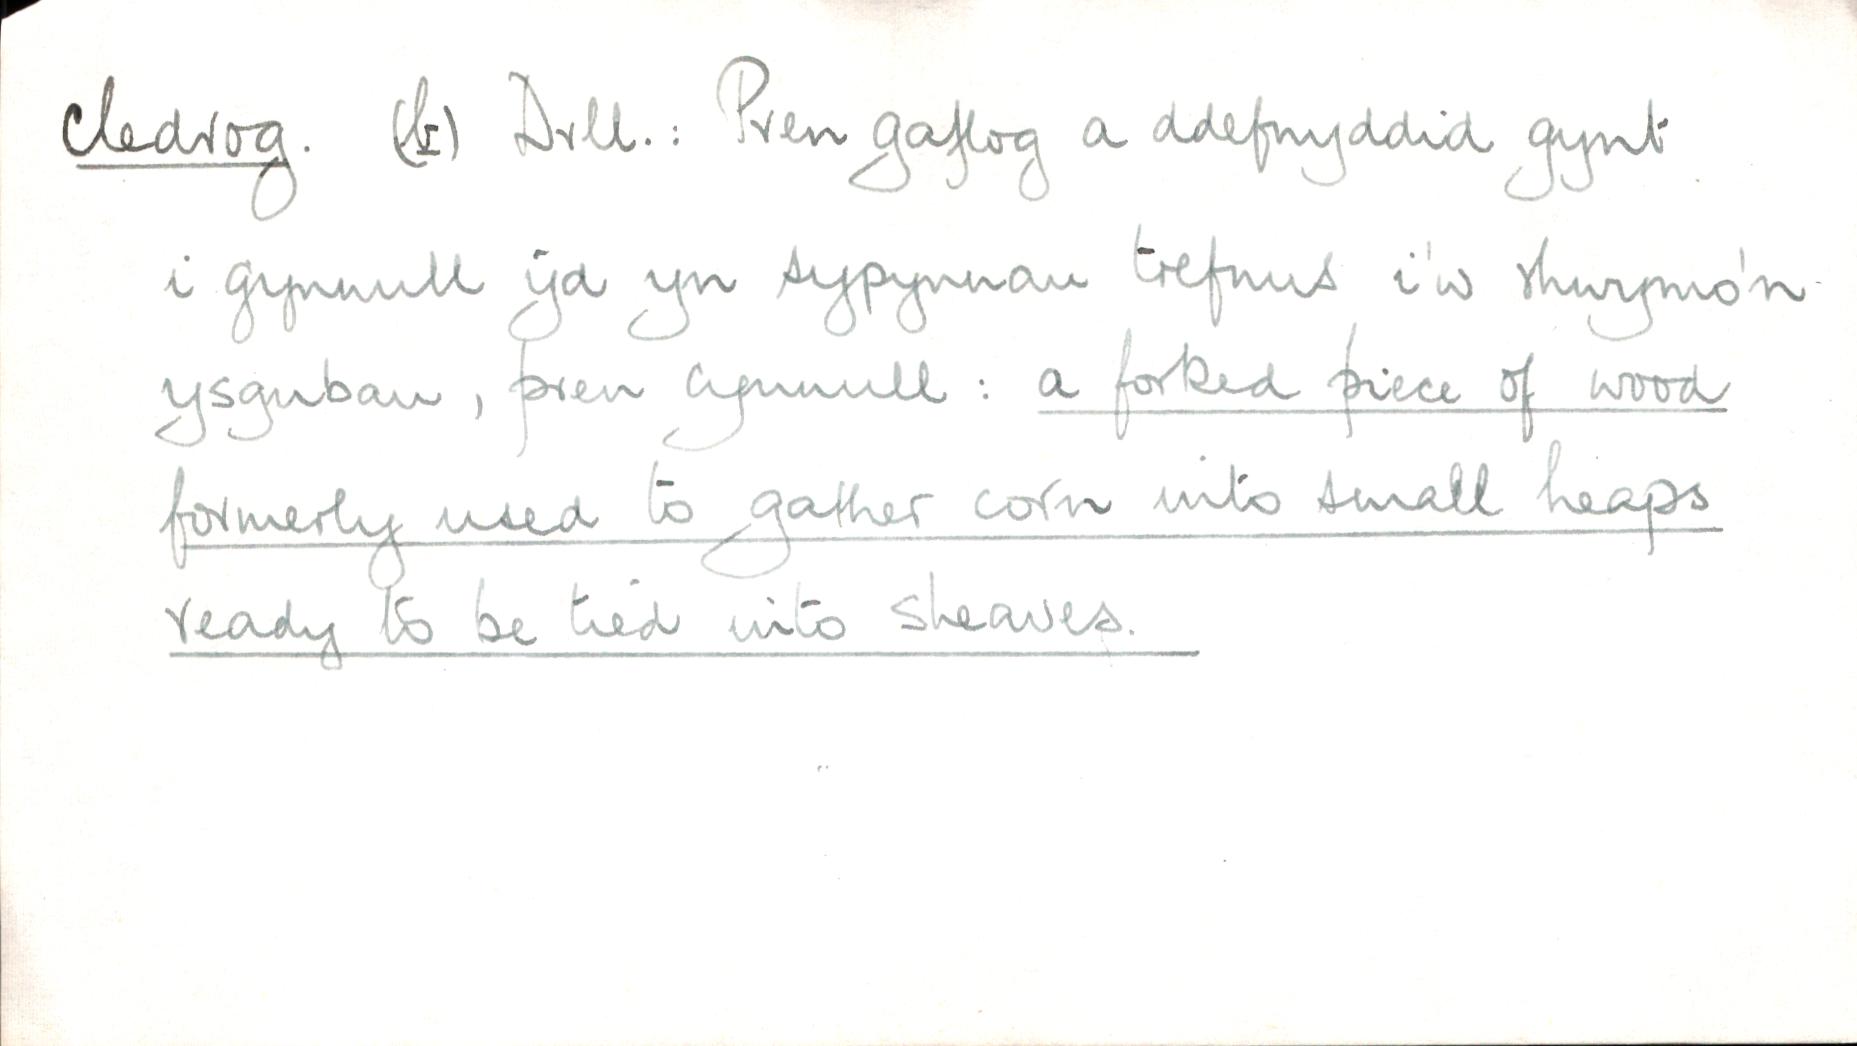 cledrog. (b) Drll.: Pren gaflog a ddefnyddid gynt
i gynnull ŷd yn sypynnau trefnus i'w rhwymo'n
ysgubau, pren cynnull: a forked piece of wood
formerly used to gather corn into small heaps
ready to be tied into sheaves.